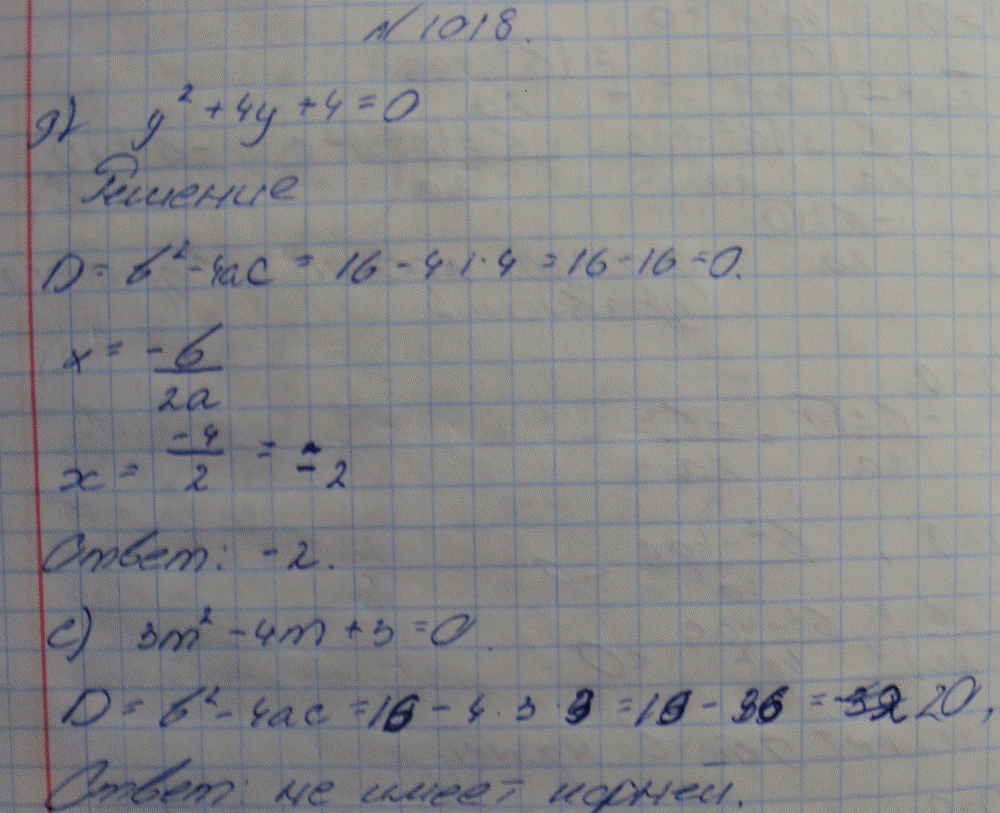 № 1018.
д) y² + 4y + 4 = 0
Решение
D = b² - 4ac = 16 - 4·1·4 = 16 - 16 = 0.
x = -b/2a
x = -4/2 = -2
Ответ: -2.
е) 3m² - 4m + 3 = 0.
D = b² - 4ac = 16 - 4·3·3 = 16 - 36 = -20,
Ответ: не имеет корней.